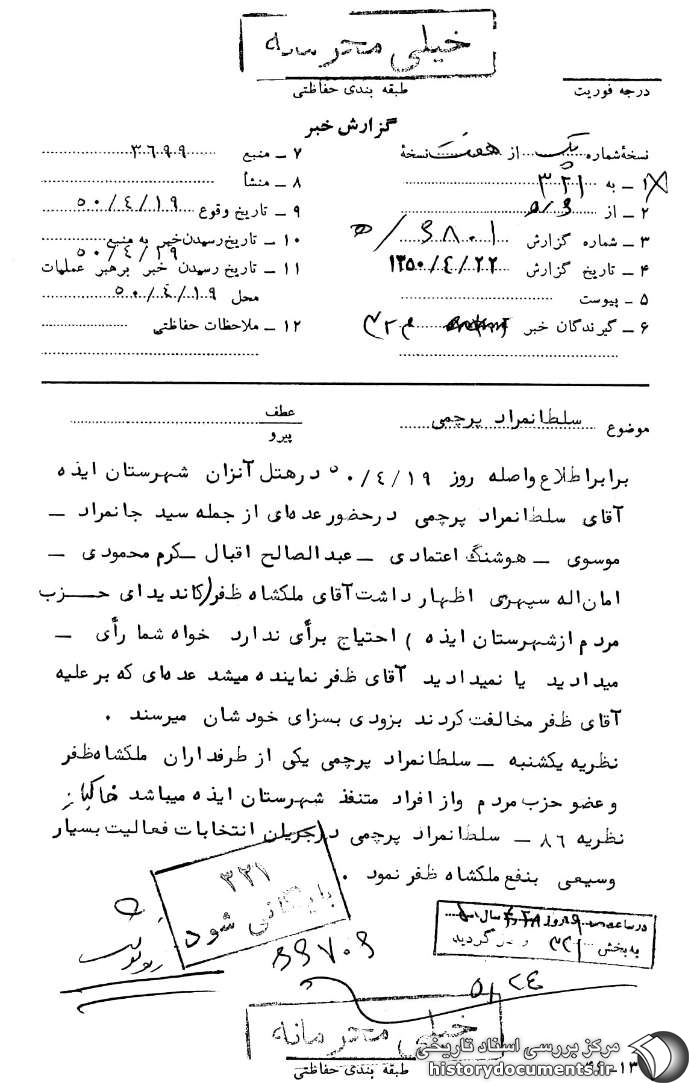 خیلی محرمانه
طبقه بندی حفاظتی
درجه فوریت
گزارش خبر
نسخهٔ شماره یک از هفت نسخهٔ
۱ ـ به ۳۲۱
۲ ـ از ۵/۶
۳ ـ شماره گزارش ۶۸۰۱/ه
۴ ـ تاریخ گزارش ۱۳۵۰/٤/۲۲
۵ ـ پیوست
۶ ـ گیرندگان خبر
۷ ـ منبع ۳٦۹۹
۸ ـ منشأ
۹ ـ تاریخ وقوع ۵۰/٤/۱۹
۱۰ ـ تاریخ رسیدن خبر به منبع ۵۰/٤/۱۹
۱۱ ـ تاریخ رسیدن خبر برهبر عملیات
محل ۵۰/٤/۱۹
۱۲ ـ ملاحظات حفاظتی
موضوع سلطانمراد پرچمی
عطف
پیرو
برابر اطلاع واصله روز ۵۰/٤/۱۹ در هتل آنزان شهرستان ایذه
آقای سلطانمراد پرچمی در حضور عده‌ای از جمله سید جانمراد ـ
موسوی ـ هوشنگ اعتمادی ـ عبدالصالح اقبال ـ کرم محمودی ـ
امان‌اله سپهری اظهار داشت آقای ملکشاه ظفر (کاندیدای حزب
مردم از شهرستان ایذه ) احتیاج برأی ندارد خواه شما رأی ـ
میدادید یا نمیدادید آقای ظفر نماینده میشد عده‌ای که بر علیه
آقای ظفر مخالفت کردند بزودی بسزای خودشان میرسند .
نظریه یکشنبه ـ سلطانمراد پرچمی یکی از طرفداران ملکشاه ظفر
و عضو حزب مردم و از افراد متنفذ شهرستان ایذه میباشد خاکیان
نظریه ۸٦ ـ سلطانمراد پرچمی در جریان انتخابات فعالیت بسیار
وسیعی بنفع ملکشاه ظفر نمود .
۳۲۱
بایگانی شود
در ساعت روز سال
به بخش ۳۲۱ وارد گردید
۶۶۷۰۶
۵/۲٤
خیلی محرمانه
طبقه بندی حفاظتی
مرکز بررسی اسناد تاریخی
historydocuments.ir